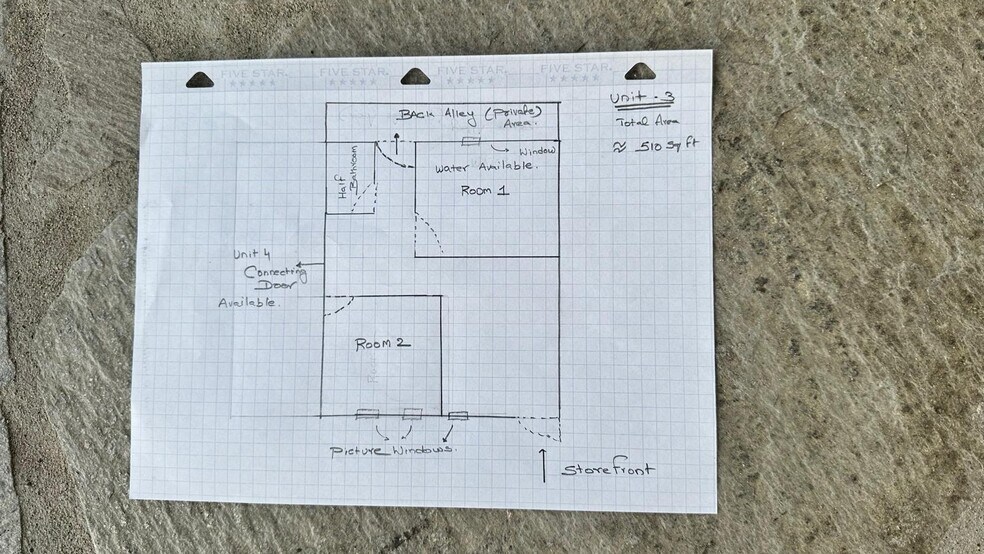 FIVE STAR.
FIVE STAR.
FIVE STAR.
FIVE STAR.
Unit - 3
Total Area
≈ 510 Sq ft
BACK Alley (Private)
Area.
Window
Half
Bathroom
Water Available.
ROOM 1
Unit 4
Connecting
Door
Available.
ROOM 2
Picture Windows.
Storefront